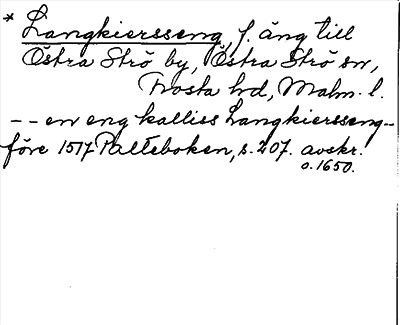 * Langkiersseng, f. äng till
Östra Strö by, Östra Strö sn,
Frosta hd, Malm. l.
-- en eng kalliss Langkiersseng--
före 1517 Palteboken, s. 207. avskr.
o. 1650.